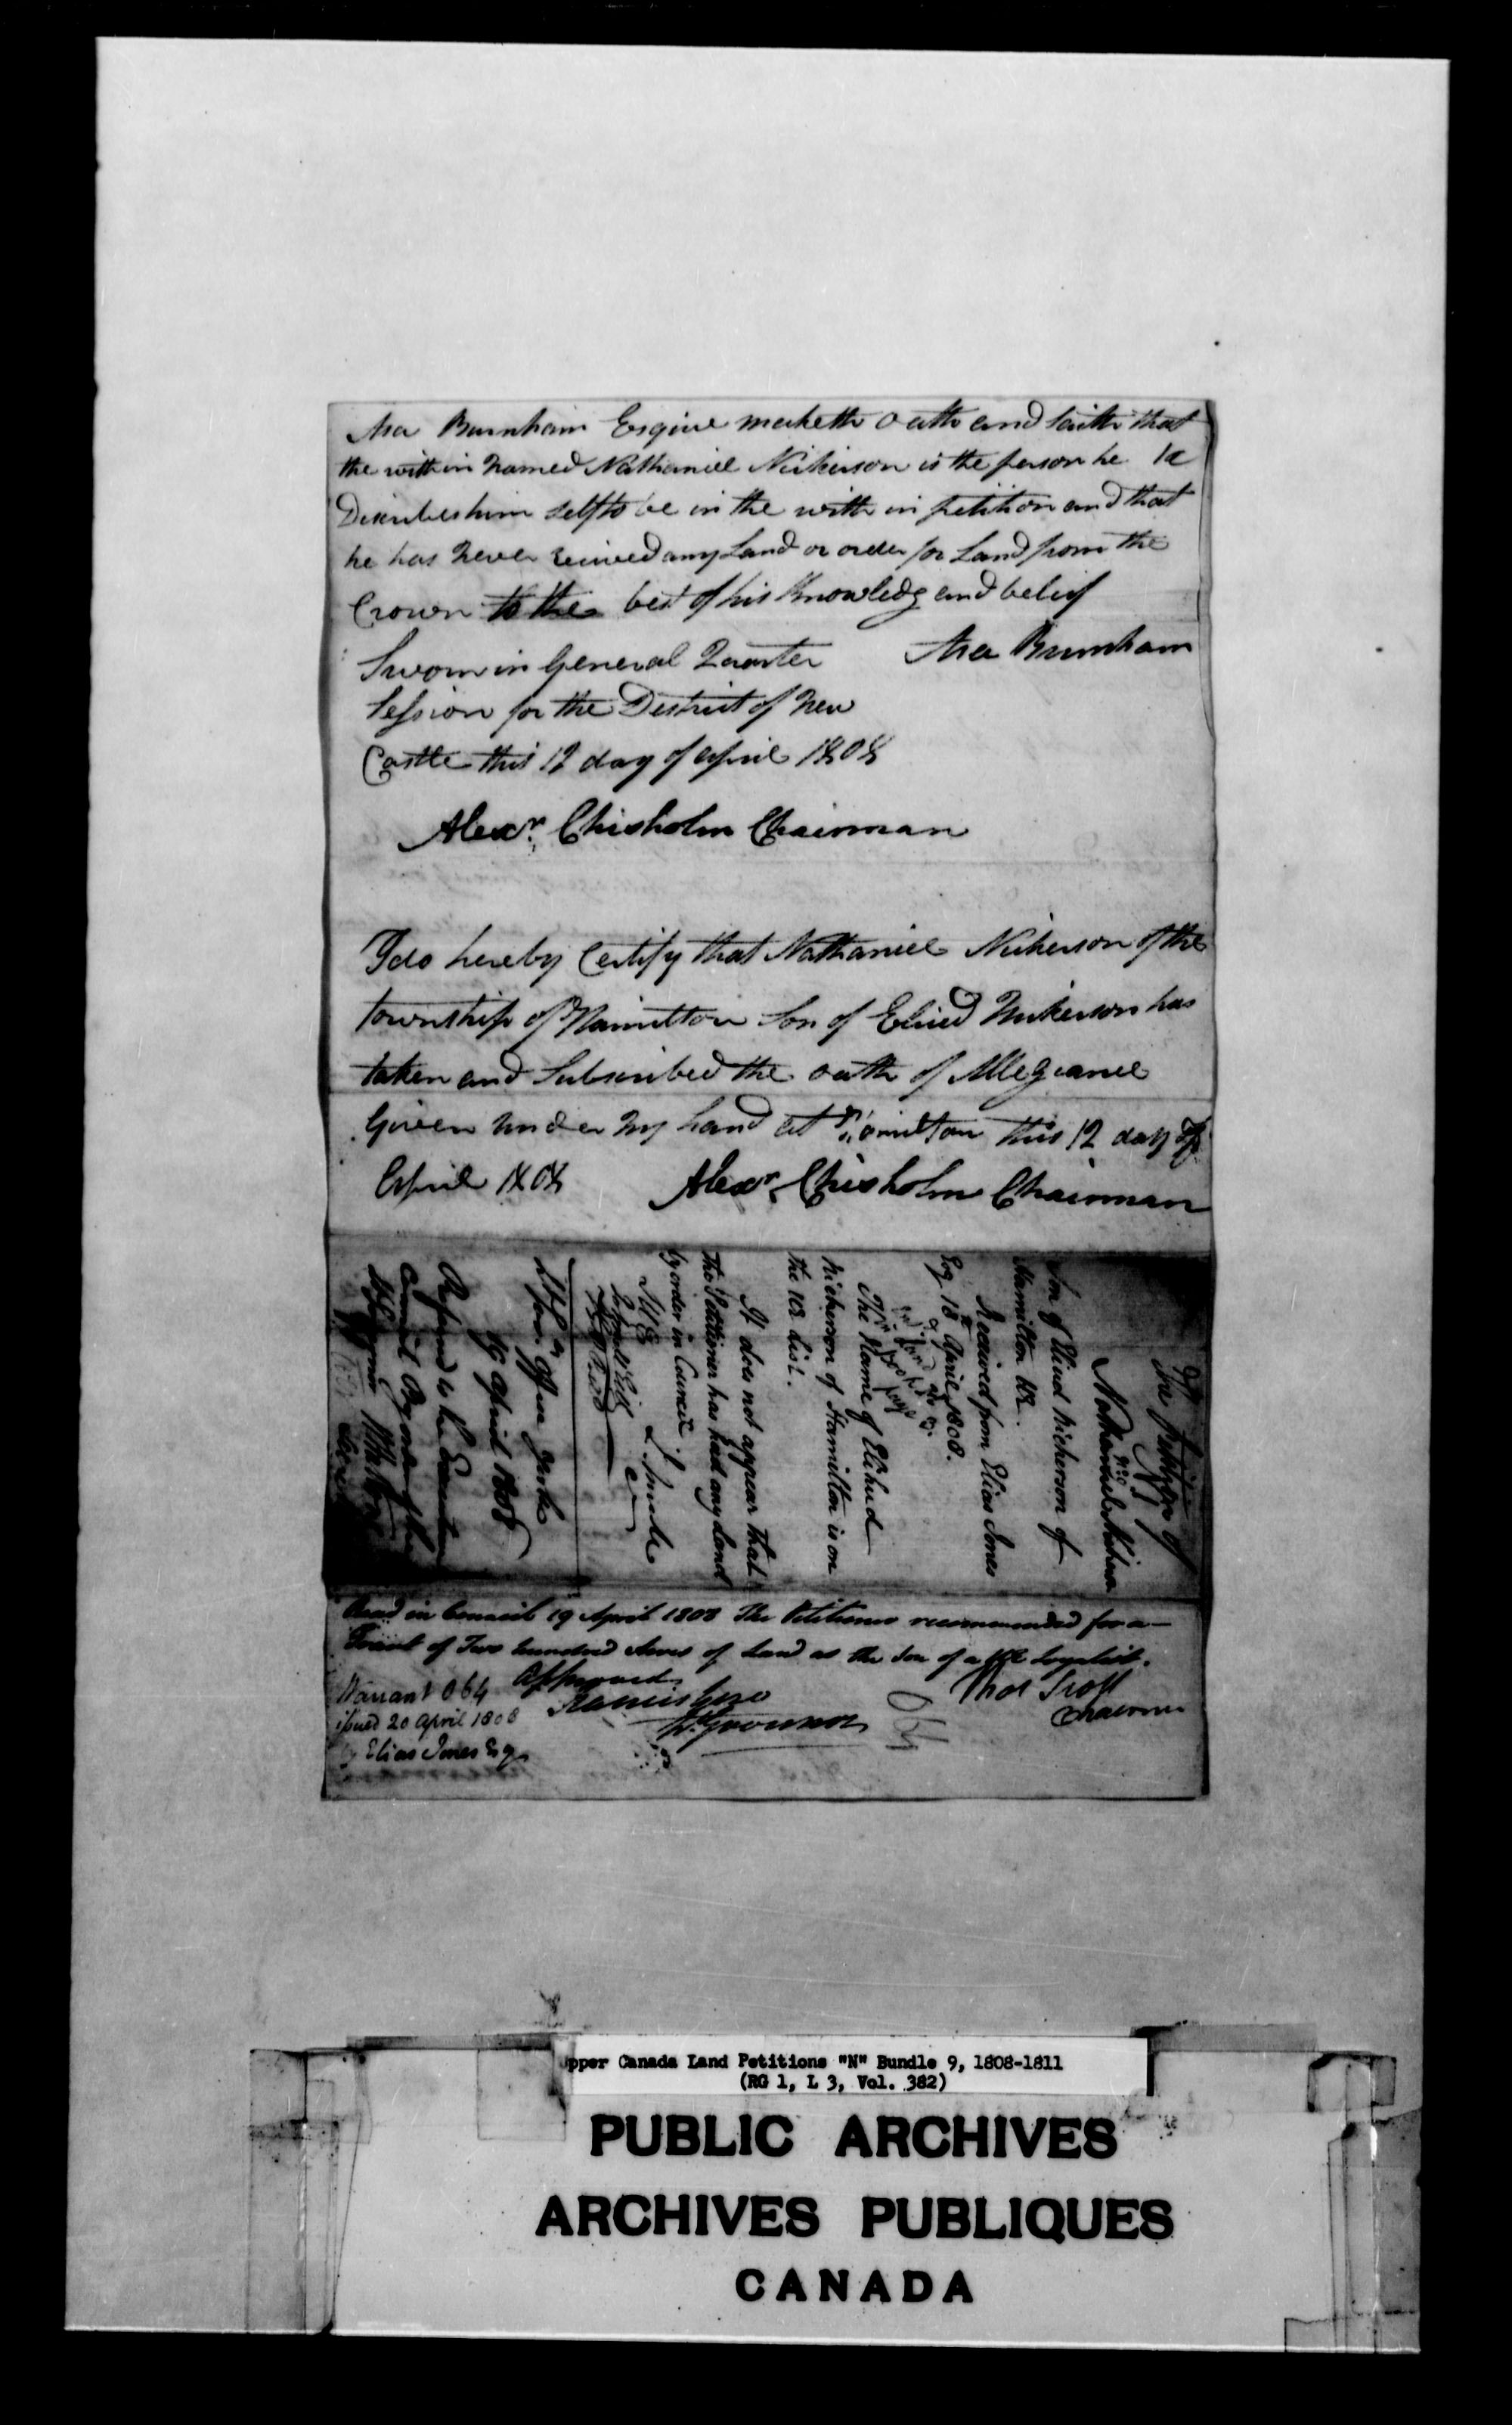 Asa Burnham Esqiue maketh oath and saith that
the within named Nathaniel Nickerson is the person he
Discribes him self to be in the with in petition and that
he has never reiived any Land or order for Land from the
Crown to the best of his Knowledg and belief
Sworn in General Quarter Asa Burnham
Session for the District of New
Castle this 12 day of april 1808
Alexr. Chisholm Chairman
I do hereby Certify that Nathaniel Nickerson of the
township of Hamilton Son of Eliud Nickerson has
taken and Subscribed the oath of Allegiance
Given under my hand at Hamilton this 12 day of
April 1808 Alexr. Chisholm Chairman
The Petition of
Nathaniel Nickerson
Son of Eliud Nickerson of
Hamilton UE.
Received from Elias Jones
Esq. 18 April 1808.
The Name of Elihud
Nickerson of Hamilton is on
the UE List.
It does not appear that
the Petitioner has had any Land
by order in Council
office York
19 April 1808
Read in Council 19 April 1808 The Petitioner recommended for a
Grant of Two hundred Acres of Land as the Son of a UE Loyalist.
Approved Thos Scott
Warrant 064 Francis Gore Chairman
issued 20 April 1808 Lt. Governor
Elias Jones Esq
pper Canada Land Petitions "N" Bundle 9, 1808-1811
(RG 1, L 3, Vol. 382)
PUBLIC ARCHIVES
ARCHIVES PUBLIQUES
CANADA